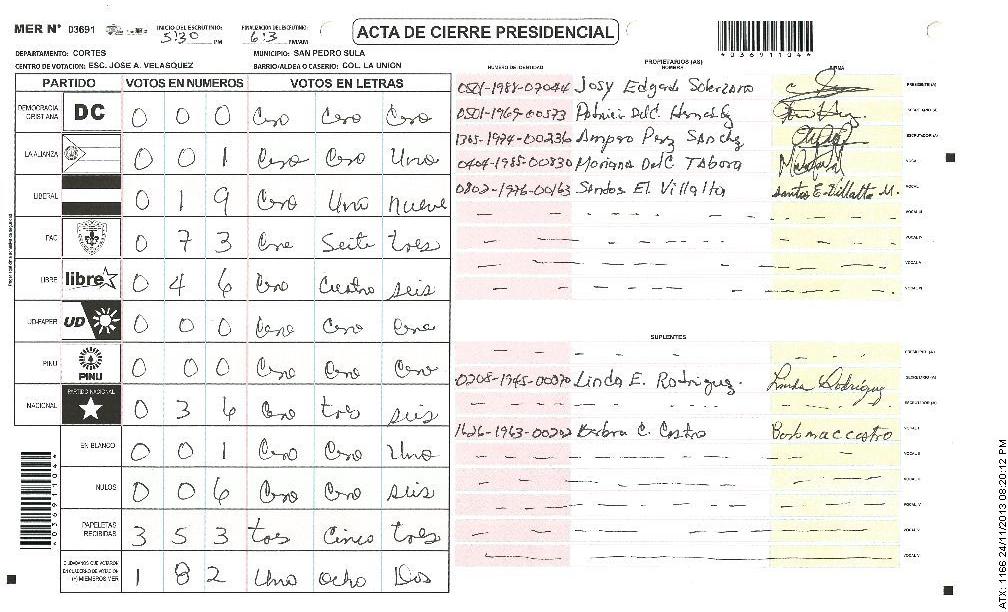 MER N° 03691 INICIO DEL ESCRUTINIO: 5:30 PM FINALIZACION DEL ESCRUTINIO: 6:3 PM/AM
ACTA DE CIERRE PRESIDENCIAL
*036911044*
DEPARTAMENTO: CORTES MUNICIPIO: SAN PEDRO SULA
CENTRO DE VOTACION: ESC. JOSE A. VELASQUEZ BARRIO/ALDEA O CASERIO: COL. LA UNION
PARTIDO VOTOS EN NUMEROS VOTOS EN LETRAS
DEMOCRACIA CRISTIANA DC 0 0 0 Cero Cero Cero
LA ALIANZA 0 0 1 Cero Cero Uno
LIBERAL 0 1 9 Cero Uno nueve
PAC 0 7 3 Cero Seite tres
LIBRE libre 0 4 6 Cero Cuatro seis
UD-FAPER UD 0 0 0 Cero Cero Cero
PINU PINU 0 0 0 Cero Cero Cero
NACIONAL PARTIDO NACIONAL 0 3 6 Cero tres seis
EN BLANCO 0 0 1 Cero Cero Uno
NULOS 0 0 6 Cero Cero seis
PAPELETAS RECIBIDAS 3 5 3 tres Cinco tres
CIUDADANOS QUE VOTARON EN CUADERNO DE VOTACION (+) MIEMBROS MER 1 8 2 Uno ocho Dos
PROPIETARIOS (AS)
NUMERO DE IDENTIDAD NOMBRE FIRMA
0501-1988-07044 Josy Edgardo Solorzano PRESIDENTE (A)
0501-1969-00573 Patricia Del C. SECRETARIO (A)
Amparo Perz Sanchez ESCRUTADOR (A)
0404-1985-00830 Mariana Del C Tabora VOCAL I
0802-1976-00163 Santos El Villalta Santos E. Villalta M. VOCAL II
VOCAL III
VOCAL IV
VOCAL V
VOCAL VI
SUPLENTES
PRESIDENTE (A)
0208-1945-00070 Linda E. Rodriguez. Linda Rodriguez SECRETARIO (A)
ESCRUTADOR (A)
1626-1963-00202 Barbara C. Castro VOCAL I
VOCAL II
VOCAL III
VOCAL IV
VOCAL V
VOCAL VI
*036911044*
ATX: 1166 24/11/2013 08:20:12 PM